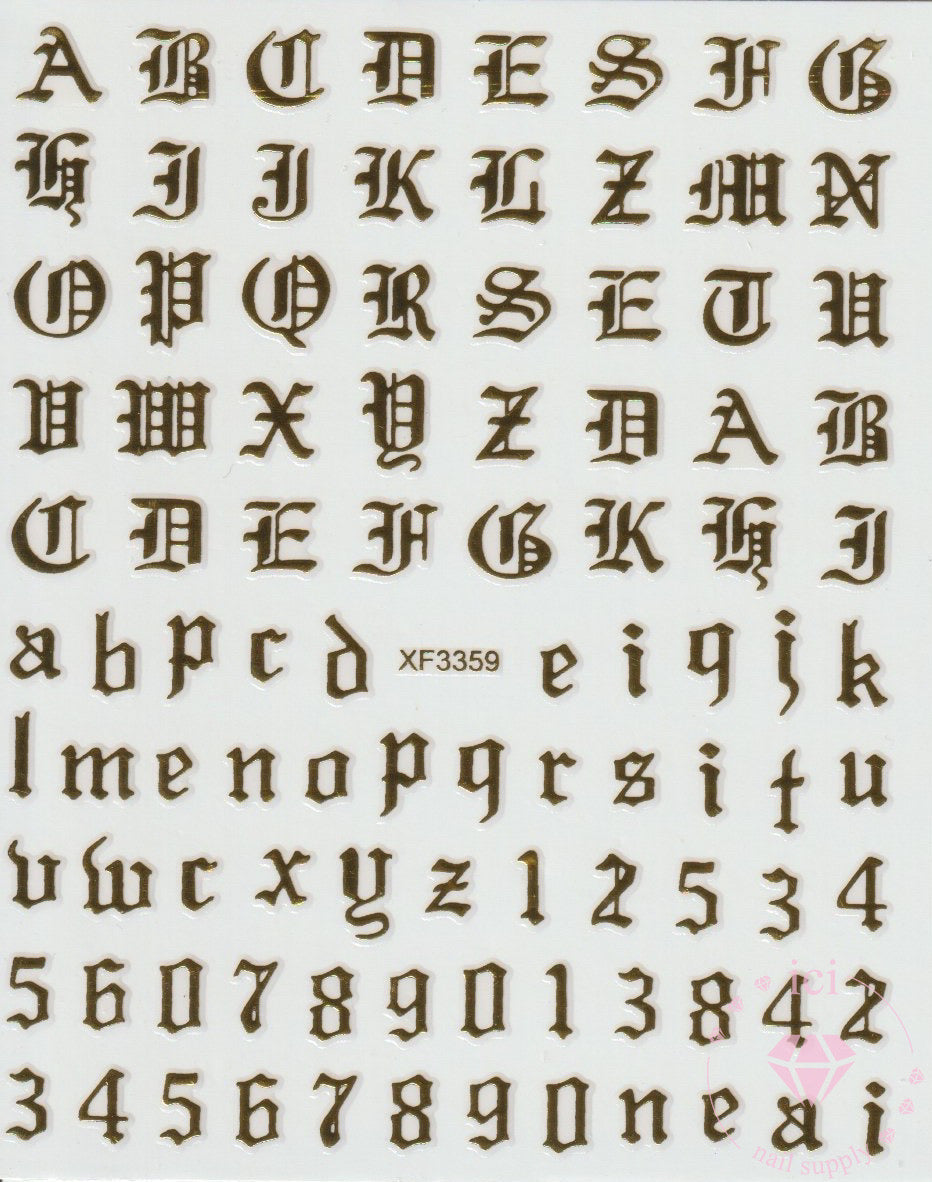 A B C D E S F G
H I J K L Z M N
O P Q R S E T U
V W X Y Z D A B
C D E F G K H I
a b p c d XF3359 e i q j k
l m e n o p q r s i t u
v w c x y z 1 2 5 3 4
5 6 0 7 8 9 0 1 3 8 4 2
3 4 5 6 7 8 9 0 n e a i
ici
nail supply